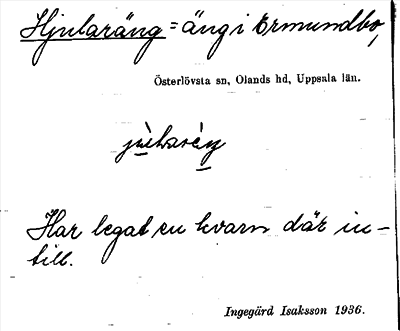 Hjularäng = äng i Ermundbo,
Österlövsta sn, Olands hd, Uppsala län.
Har legat en kvarn där in-
till.
Ingegärd Isaksson 1936.